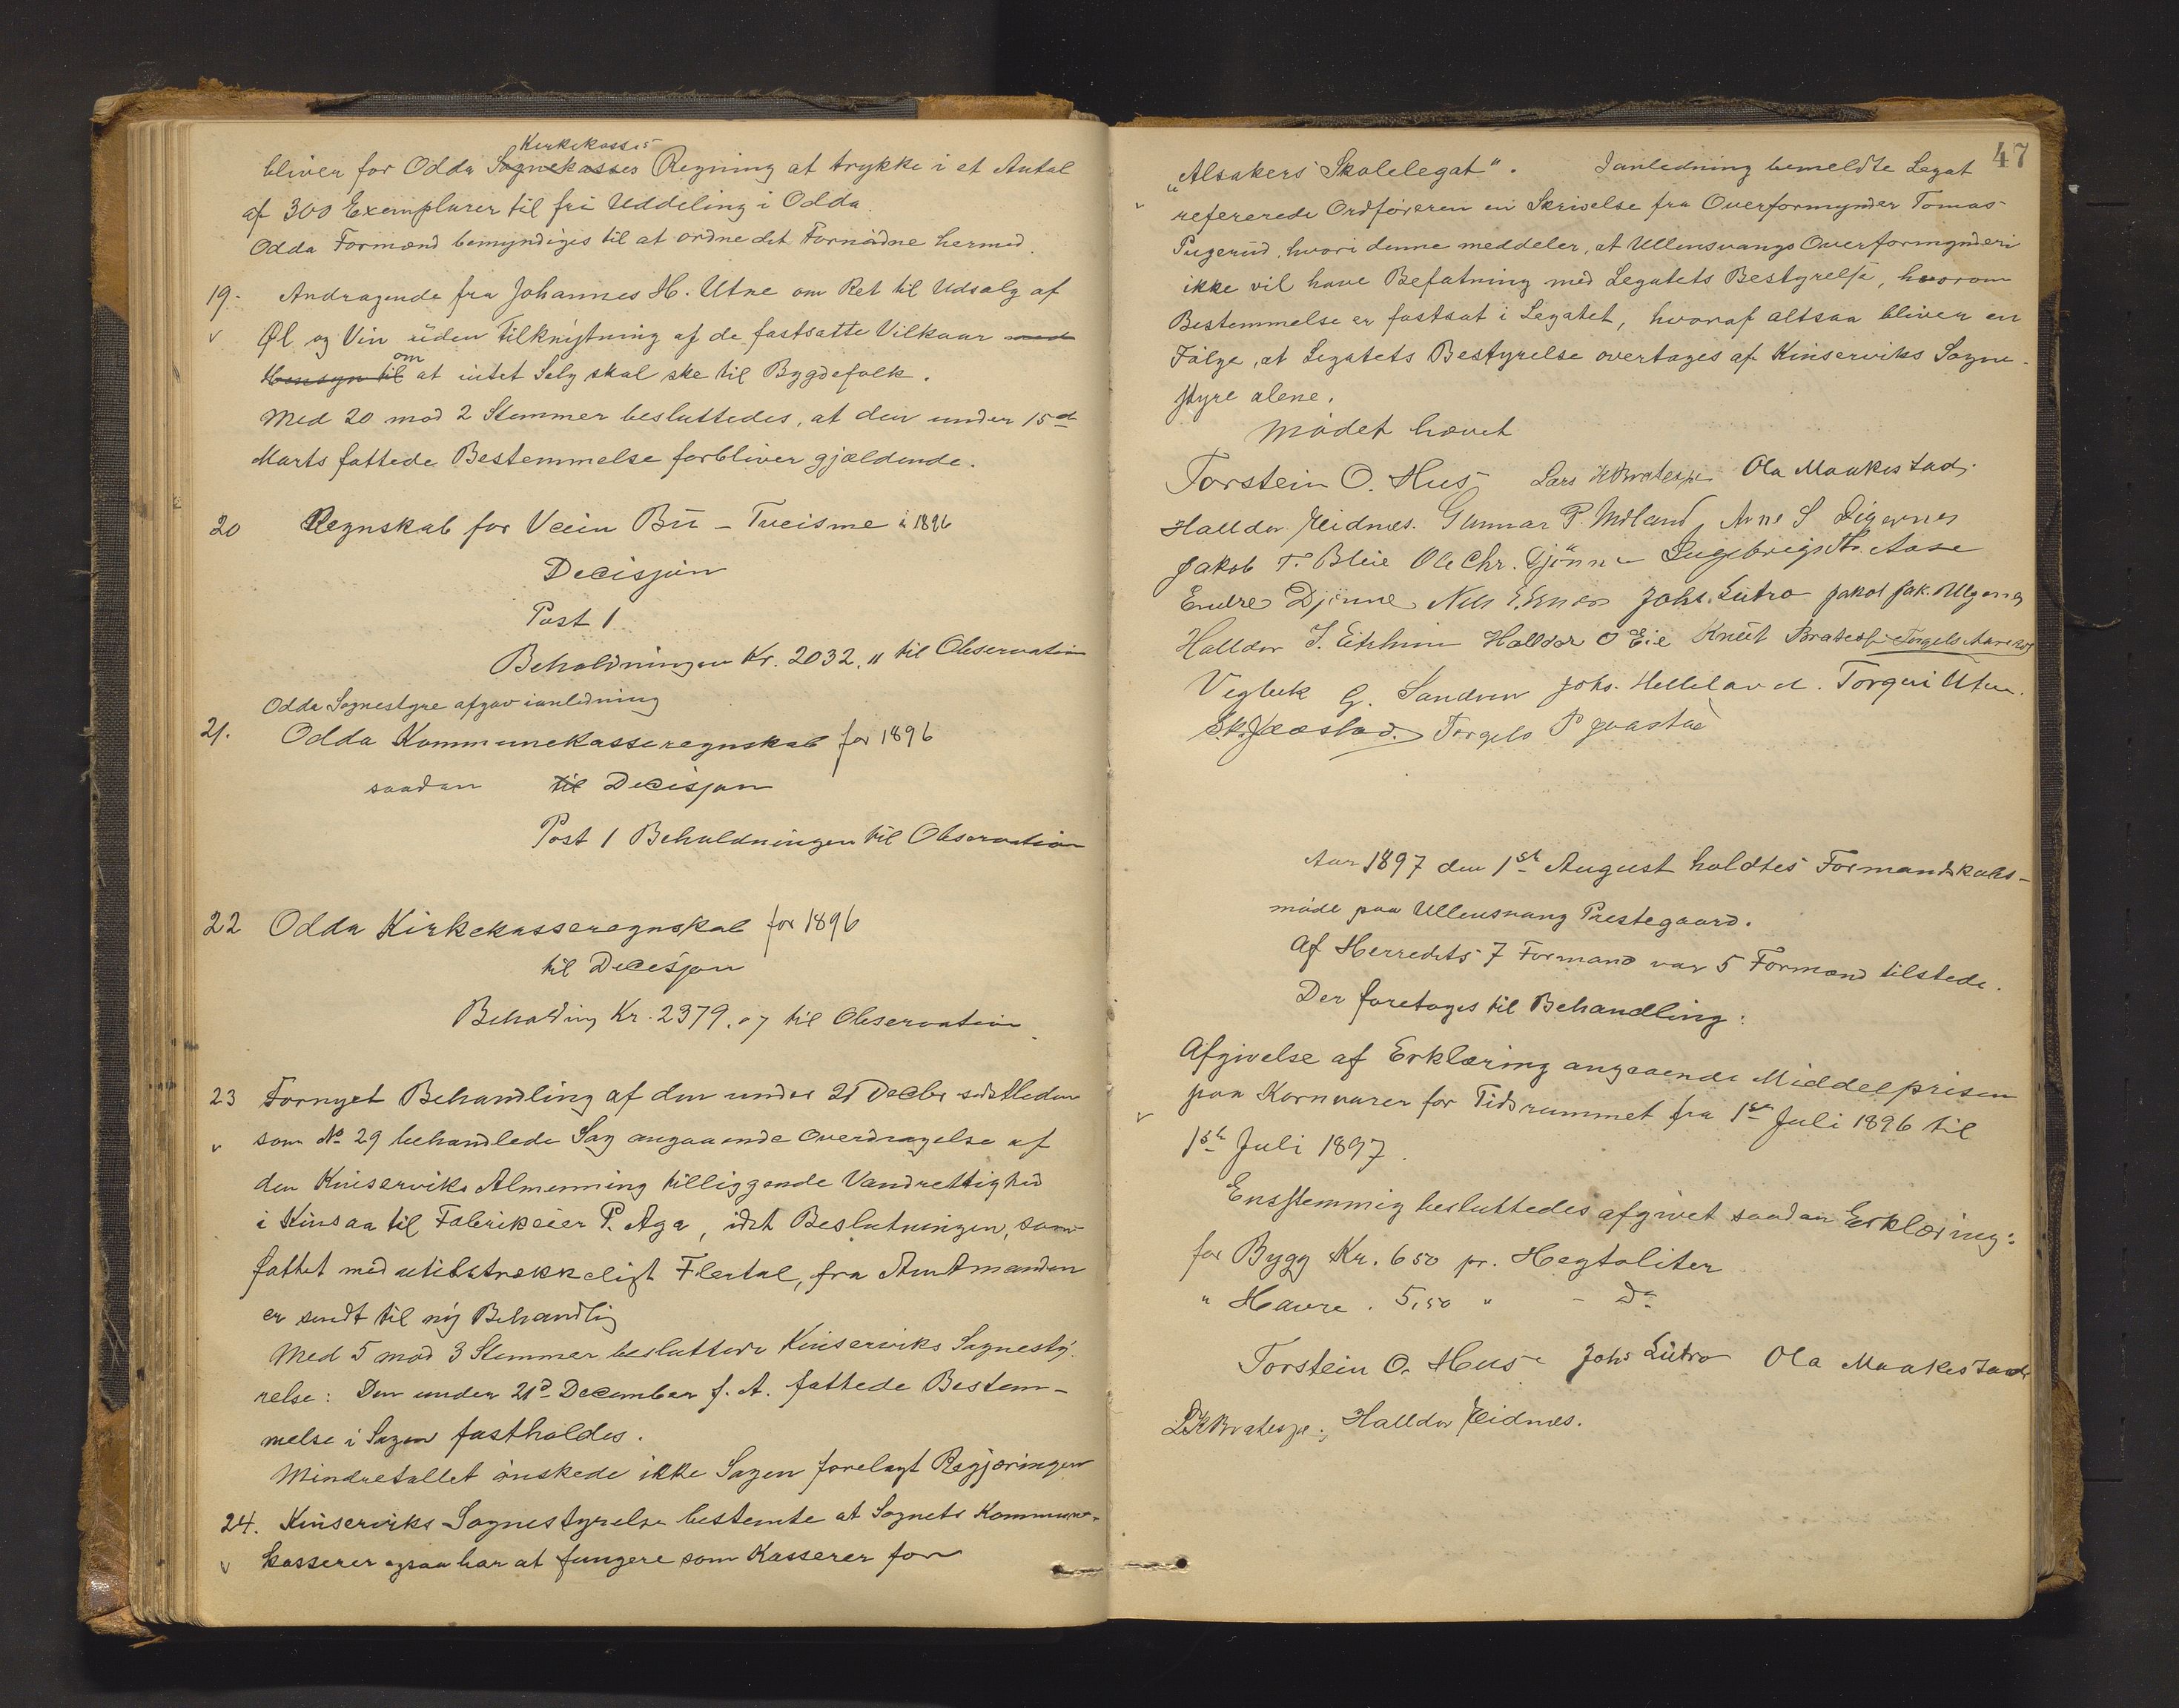 Kirkekasses
bliver for Odda Sognekasses Regning at trykke i et Antal
af 300 Exemplarer til fri Uddeling i Odda.
Odda Formænd bemyndiges til at ordne det Fornødne hermed.
19. Andragende fra Johannes H. Utne om Ret til Udsalg af
v Øl og Vin uden Tilknytning af de fastsatte Vilkaar med
om
Hensyn til at intet Salg skal ske til Bygdefolk.
Med 20 mod 2 Stemmer besluttedes, at den under 15de
Marts fattede Bestemmelse forbliver gjældende.
20 Regnskab for Veien Bu - Tveisme i 1896
Decisjon
Post 1
Beholdningen Kr. 2032. " til Observation
Odda Sognestyre afgav ianledning
21. Odda Kommunekasseregnskab for 1896
saadan til Decisjon
Post 1 Beholdningen til Observation
22 Odda Kirkekasseregnskab for 1896
til Decisjon
Beholding Kr. 2379.07 til Observation
23 Fornyet Behandling af den under 21 Decbr sidstleden
v som No 29 behandlede Sag angaaende Overdragelse af
den Kinserviks Almenning tilliggende Vandrettighed
i Kinsaa til Fabrikeier P. Aga, idet Beslutningen, som
fattet med utilstrækkeligt Flertal, fra Amtmanden
er sendt til ny Behandlig
Med 5 mod 3 Stemmer besluttede Kinserviks Sognesty-
relse: Den under 21de December f. A. fattede Bestem-
melse i Sagen fastholdes.
Mindretallet ønskede ikke Sagen forelagt Regjeringen
24. Kinserviks Sognestyrelse bestemte at Sognets Kommune-
v kasserer ogsaa har at fungere som Kasserer for
47
„Alsakers Skolelegat". Ianledning bemeldte Legat
v refererede Ordføreren en Skrivelse fra Overformynder Tomas
Pugerud, hvori denne meddeler, at Ullensvangs Overformynderi
ikke vil have Befatning med Legatets Bestyrelse, hvorom
Bestemmelse er fastsat i Legatet, hvoraf altsaa bliver en
Følge, at Legatets Bestyrelse overtages af Kinserviks Sogne-
styre alene.
Mødet hævet
Torstein O. Hus Lars K Bratespe Ola Maakestad.
Halldor Eidnes. Gunnar P. Midland, Arne S Digernes
Jakob T. Bleie Ole Chr. Djønne Ingebrigt Aase
Endre Djønne Nils Johs. Lutro Jakob Jak.
Halldor J. Eitrheim Halldor O Eie Knut Bratespe Torgels
Vegleik G. Sandven Johs. Helleland. Torgeir Utne.
Torgels P
Aar 1897 den 1ste August holdtes Formandskabs-
møde paa Ullensvang Prestegaard.
Af Herredets 7 Formænd var 5 Formænd tilstede.
Der foretoges til Behandling:
Afgivelse af Erklæring angaaende Middelprisen
v paa Kornvarer for Tidsrummet fra 1ste Juli 1896 til
1ste Juli 1897.
Enstemmig besluttedes afgivet saadan Erklæring:
for Bygg Kr. 6 50 pr. Hegtoliter
" Havre . 5,50 " - do
Torstein O. Hus Johs Lutro Ola Maakestad
L K Bratespe. Halldor Eidnes.